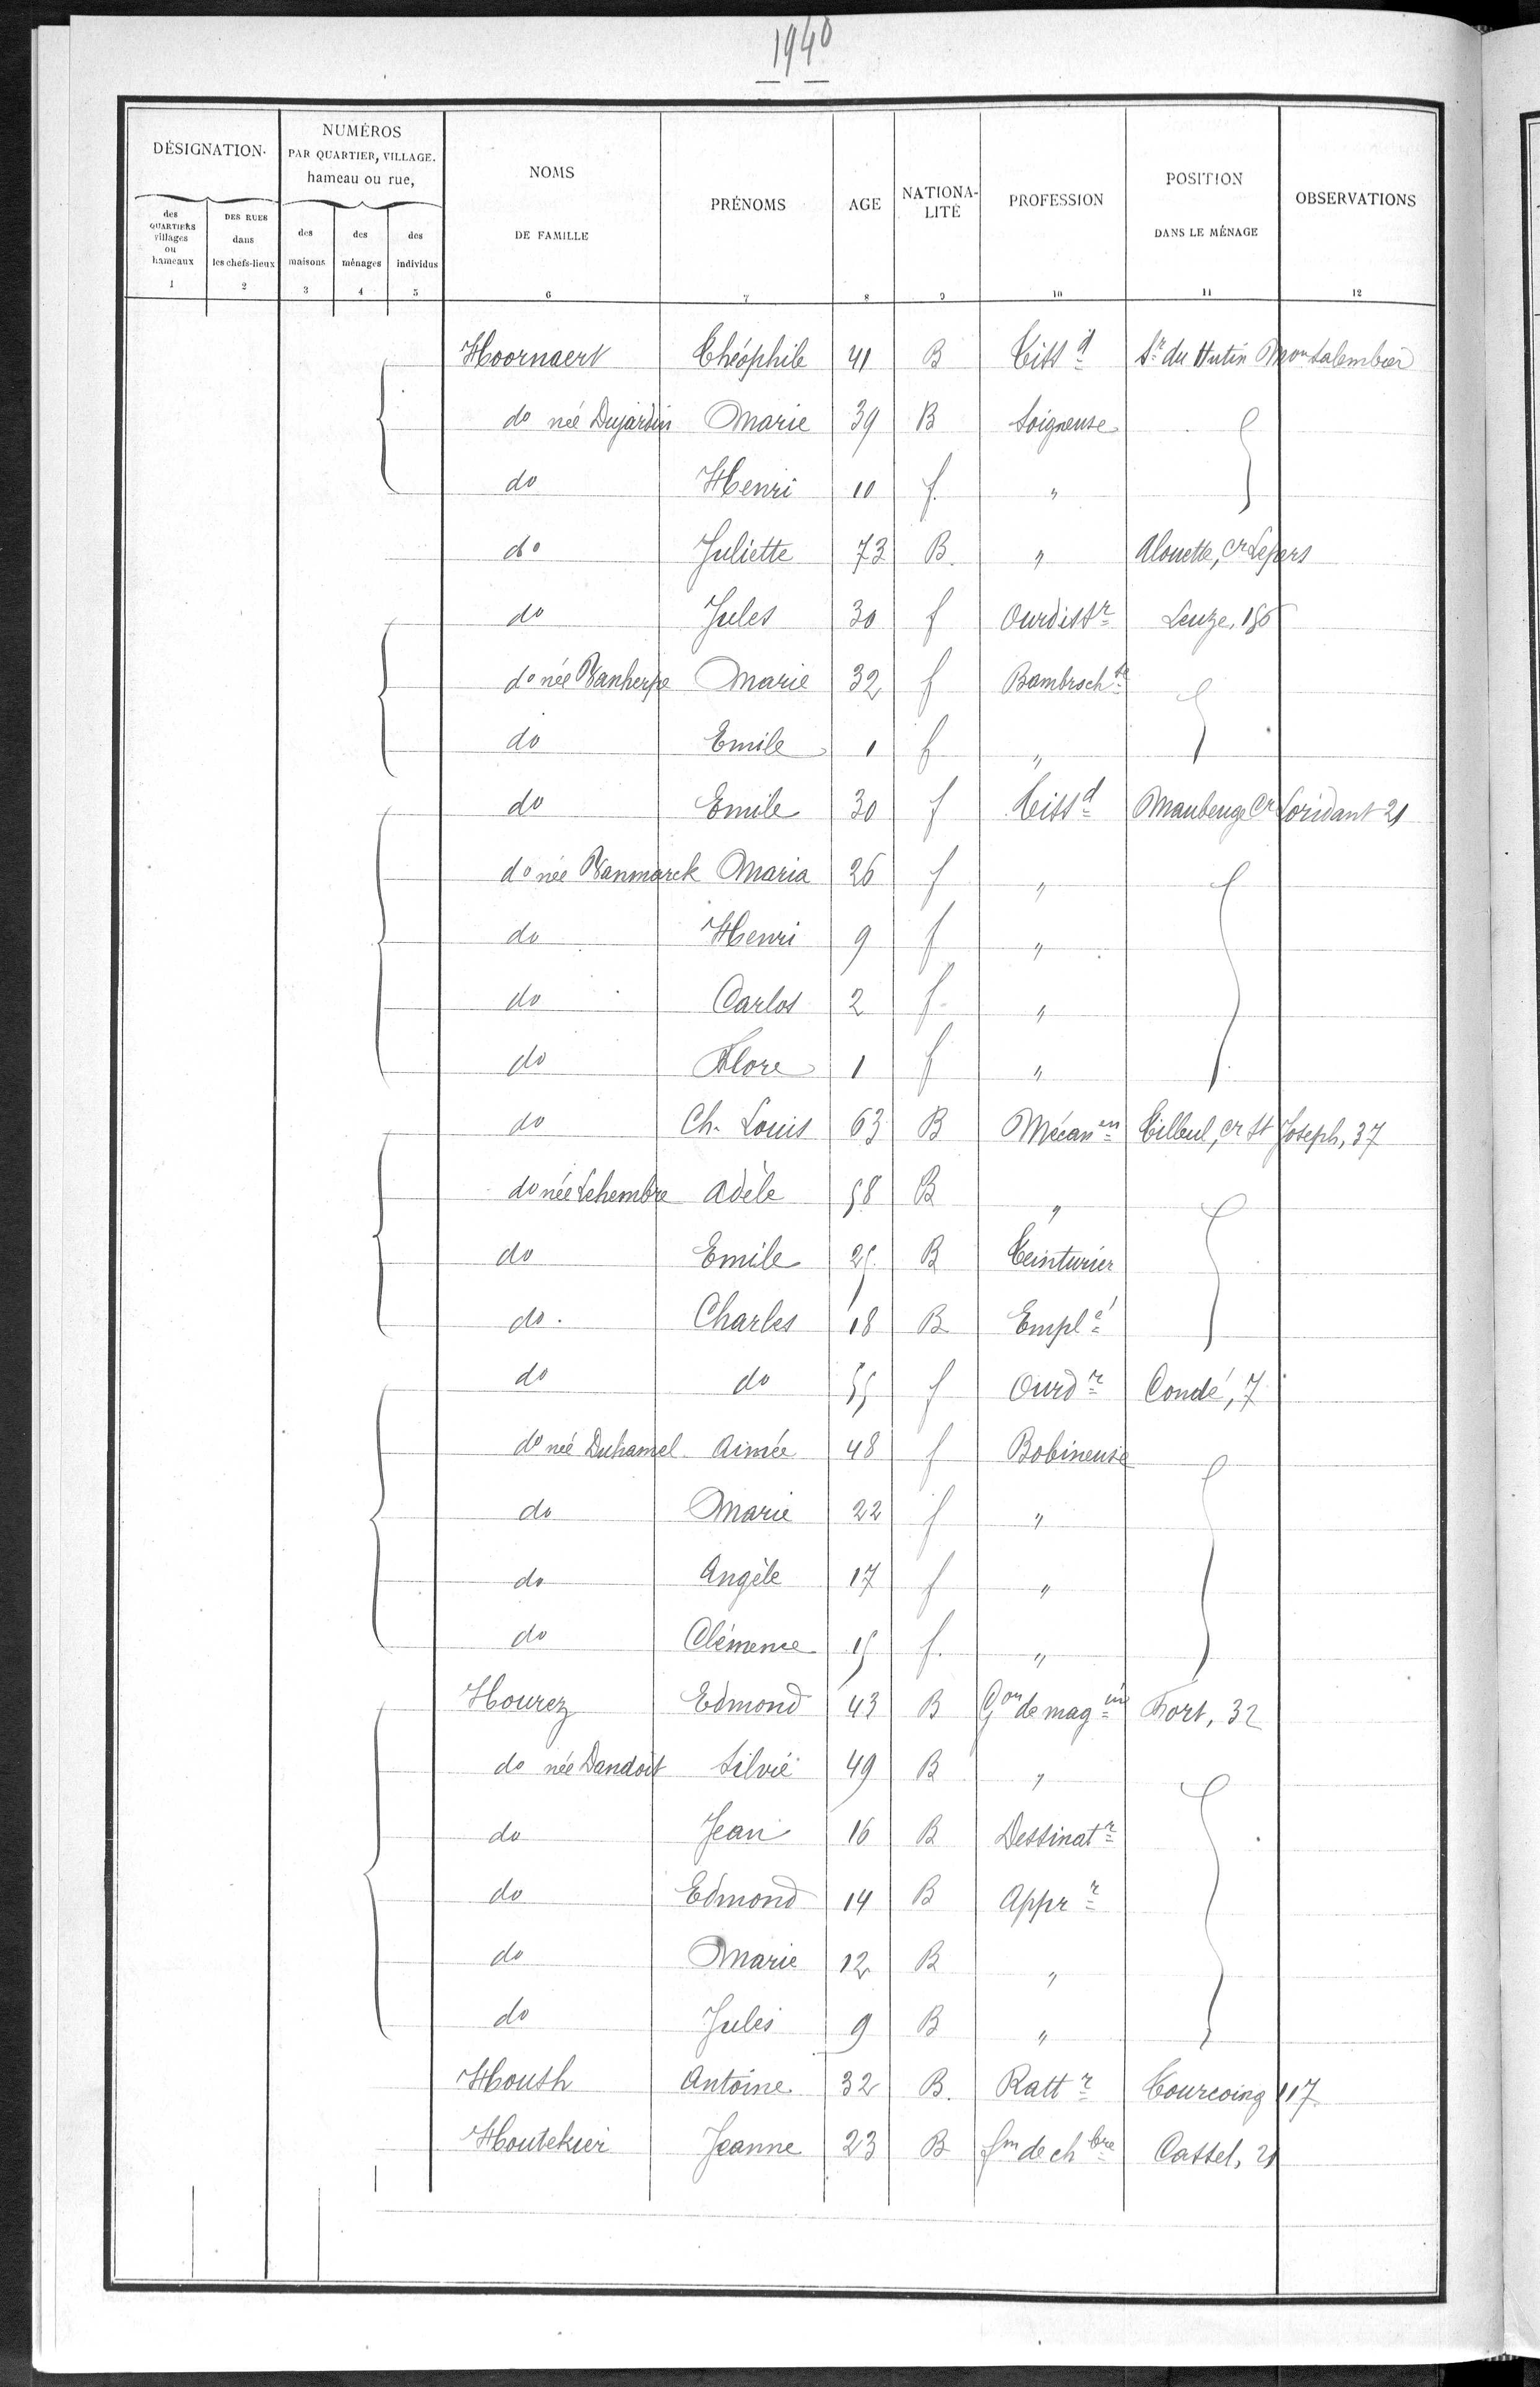 1940
DÉSIGNATION
NUMÉROS
PAR QUARTIER, VILLAGE.
hameau ou rue,
NOMS
DE FAMILLE
PRÉNOMS
AGE
NATIONA-
LITÉ
PROFESSION
POSITION
DANS LE MÉNAGE
OBSERVATIONS
des
QUARTIERS
villages
ou
hameaux
DES RUES
dans
les chefs-lieux
des
maisons
des
ménages
des
individus
1 2 3 4 5 6 7 8 9 10 11 12
Hoornaert Théophile 41 B Tissd Sr du Hutin Montalember
do née Dujardin Marie 39 B Soigneuse
do Henri 10 f "
do Juliette 73 B. " Alouette, cr Lepers
do Jules 30 f Ourdissr Leuze, 156
do née Vanherpe Marie 32 f Bambrochse
do Emile 1 f "
do Emile 30 f Tissd Maubeuge cr Loridant 21
do née Vanmarck Maria 26 f "
do Henri 9 f "
do Carlos 2 f "
do Flore 1 f "
do Ch. Louis 63 B Mécanen Tilleul, cr St Joseph, 37
do née Lehembre Adèle 58 B "
do Emile 25 B Teinturier
do Charles 18 B Emplé
do do 55 f Ourdr Condé, 7
do née Duhamel Aimée 48 f Bobineuse
do Marie 22 f "
do Angèle 17 f "
do Clémence 15 f. "
Hourez Edmond 43 B Gon de magin Fort, 32
do née Dandoit Silvie 49 B "
do Jean 16 B Dessinatr
do Edmond 14 B Apprr
do Marie 12 B "
do Jules 9 B "
Housh Antoine 32 B. Rattr Tourcoing 117
Houtekier Jeanne 23 B fm de chbre Cassel, 21